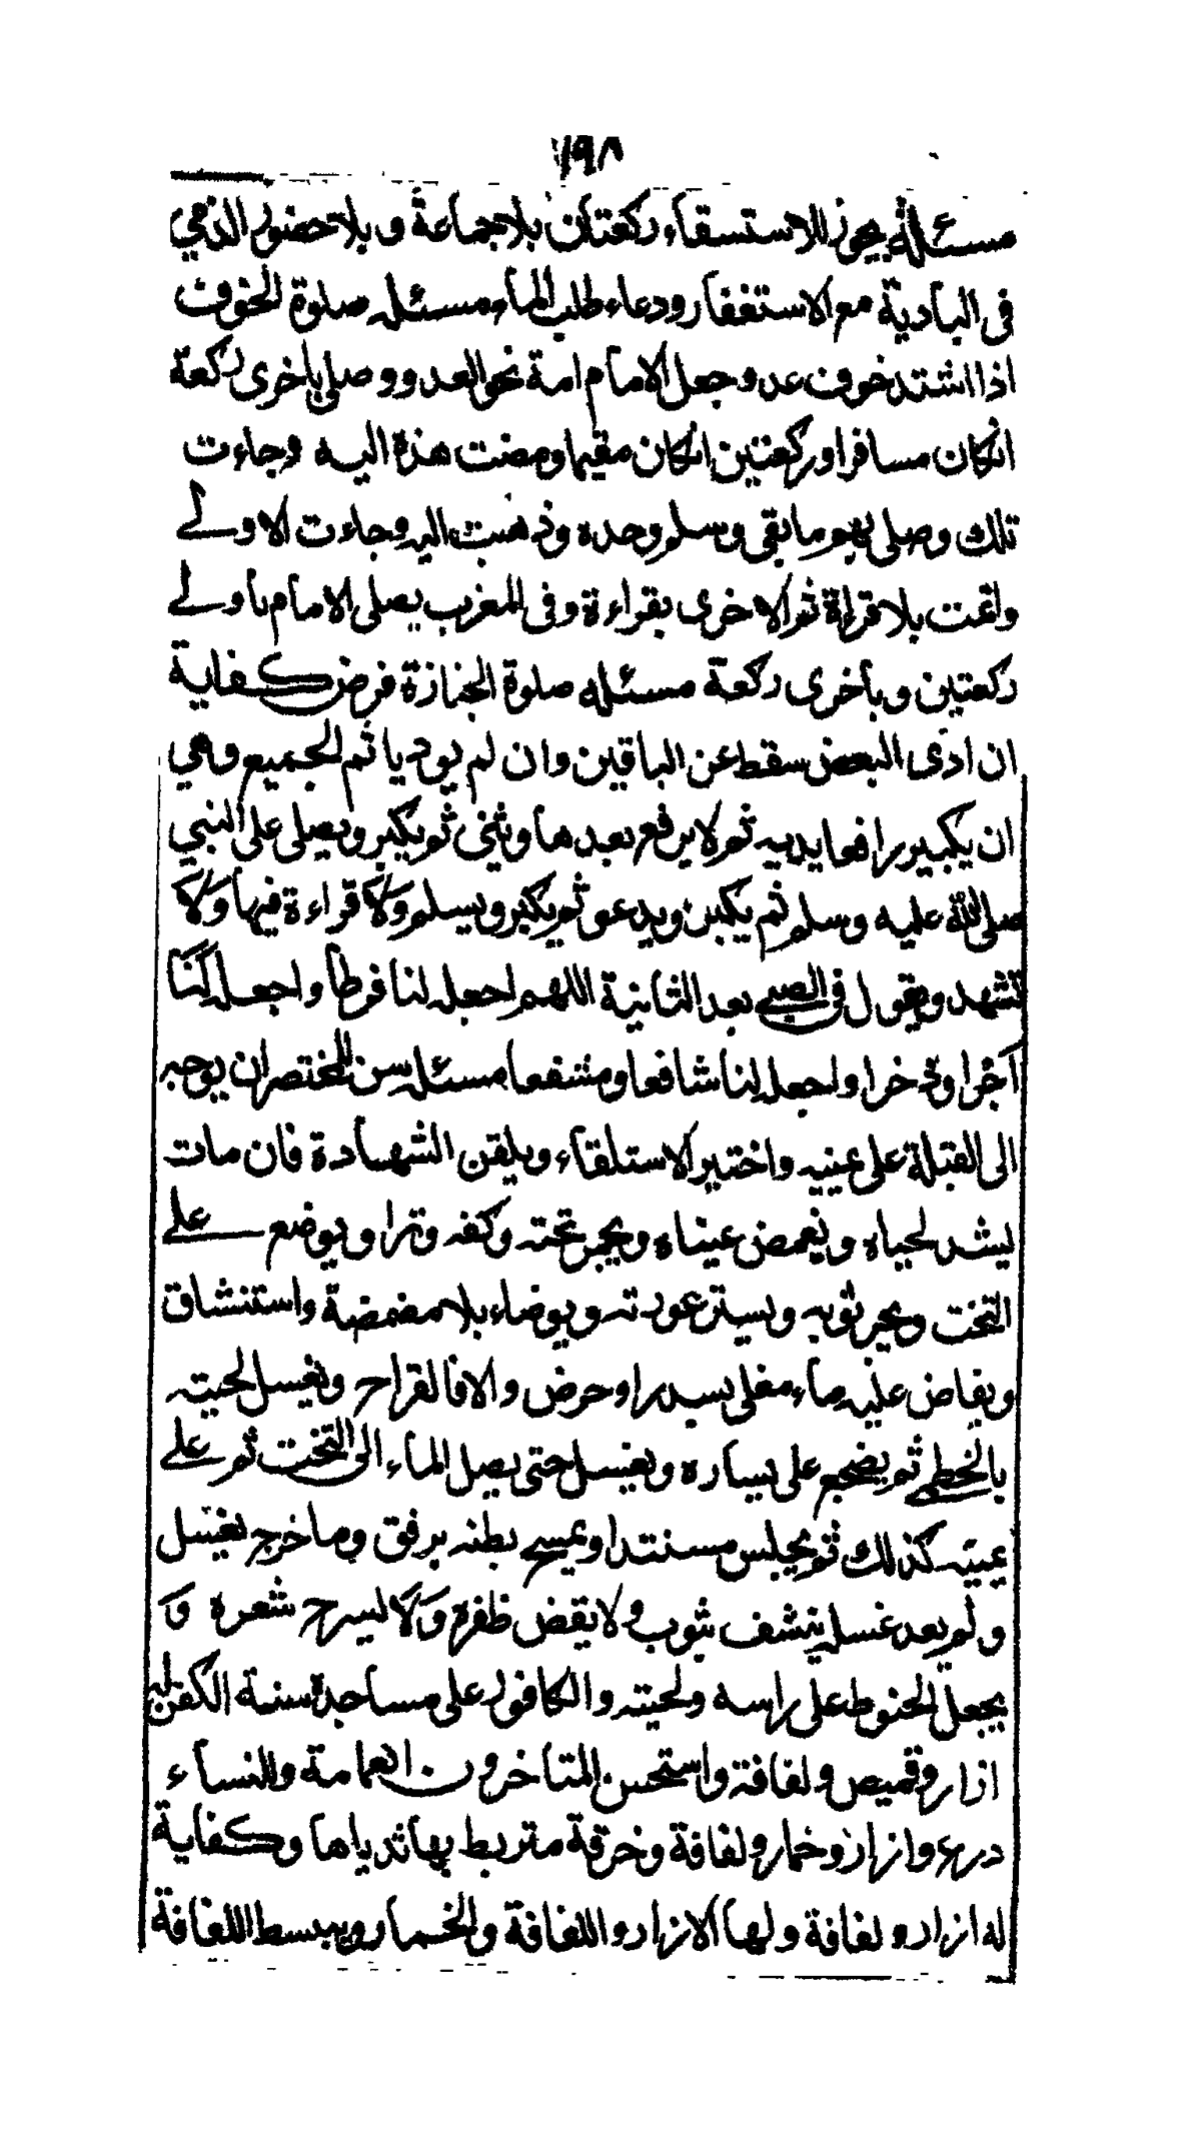 ١٩٨
مسئلة يجوز للاستسقاء ركعتان بلا جماعة و بلا حضور الذمي
فى البادية مع الاستغفار ودعاء طلب الماء مسئله صلوة الخوف
اذا اشتد خوف عدو جعل الامام امة نحو العدو و صلى باخرى ركعة
انكان مسافرا و ركعتين انكان مقيما ومضت هذه اليه وجاءت
تلك وصلى بهم ما بقى وسلم وحده وذهبت اليه وجاءت الاولے
واتمت بلا قراءة ثم الاخرى بقراءة وفى المغرب يصلى الامام باولے
ركعتين و باخرى ركعة مسئله صلوة الجنازة فرض كفاية
ان ادى البعض سقط عن الباقين وان لم يود ياثم الجميع وهي
ان يكبير رافعا يديه ثم لا يرفع بعدها ويثنى ثم يكبر ويصلى على النبي
صلى الله عليه وسلم ثم يكبر ويدعو ثم يكبر ويسلم ولا قراءة فيها ولا
تشهد ويقول فى الصبے بعد الثانية اللهم اجعله لنا فرطا واجعله لنا
اجرا وذخرا واجعله لنا شافعا ومشفعا مسئله سن للمختصر ان يوجه
الى القبلة على يمينه واختير الاستلقاء ويلقن الشهادة فان مات
يشد لحياه ويغمض عيناه ويجمر تخته وكفنه وترا ويوضع علے
التخت ويجر ثوبه ويستر عورته ويوضاء بلا مضمضة واستنشاق
ويفاض عليه ماء مغلى بسدر او حرض والا فالقراح ويغسل لحيته
بالخطمے ثم يضجع على يساره ويغسل حتى يصل الماء الى التخت ثم علے
يمينه كذلك ثم يجلس مستندا ويمسح بطنه برفق وما خرج يغسل
و لم يعد غسله ينشف بثوب ولا يقض ظفره ولا يسرح شعره و
يجعل الحنوط على راسه ولحيته والكافور على مساجده سنة الكفن له
ازار وقميص ولفافة واستحسن المتاخرون العمامة وللنساء
درع وازار وخمار ولفافة وخرقة متربط بها ثدياها وكفاية
له ازار ولفافة ولها الازار واللفافة والخمار ويبسط اللفافة